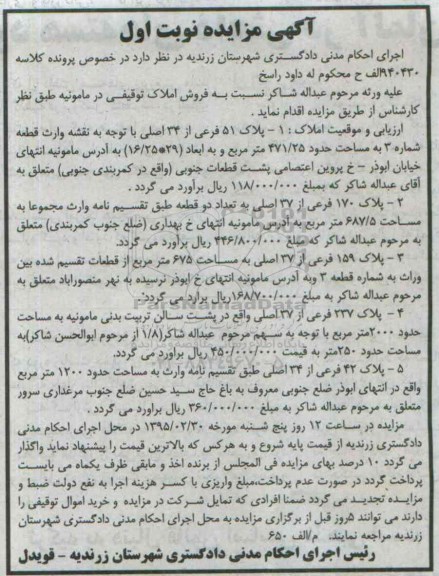 آگهی مزایده نوبت اول
اجرای احکام مدنی دادگستری شهرستان زرندیه در نظر دارد در خصوص پرونده کلاسه
۹۴۰۴۳۰الف ح محکوم له داود راسخ
علیه ورثه مرحوم عبداله شاکر نسبت به فروش املاک توقیفی در مامونیه طبق نظر
کارشناس از طریق مزایده اقدام نماید .
ارزیابی و موقعیت املاک : ۱ - پلاک ۵۱ فرعی از ۳۴ اصلی با توجه به نقشه وارث قطعه
شماره ۳ به مساحت حدود ۴۷۱/۲۵ متر مربع و به ابعاد (۲۹*۱۶/۲۵) به آدرس مامونیه انتهای
خیابان ابوذر - خ پروین اعتصامی پشت قطعات جنوبی (واقع در کمربندی جنوبی) متعلق به
آقای عبداله شاکر که بمبلغ ۱۱۸/۰۰۰/۰۰۰ ریال برآورد می گردد .
۲ - پلاک ۱۷۰ فرعی از ۳۷ اصلی به تعداد دو قطعه طبق تقسیم نامه وارث مجموعا به
مساحت ۶۸۷/۵ متر مربع به آدرس مامونیه انتهای خ بهداری (ضلع جنوب کمربندی) متعلق
به مرحوم عبداله شاکر که مبلغ ۴۴۶/۸۰۰/۰۰۰ ریال برآورد می گردد.
۳ - پلاک ۱۵۹ فرعی از ۳۷ اصلی به مساحت ۶۷۵ متر مربع از قطعات تقسیم شده بین
وراث به شماره قطعه ۳ وبه آدرس مامونیه انتهای خ ابوذر نرسیده به نهر منصوراباد متعلق به
مرحوم عبداله شاکر به مبلغ ۱۶۸/۷۰۰/۰۰۰ریال برارد می گردد.
۴ - پلاک ۲۳۷ فرعی از ۳۷ اصلی واقع در پشت سالن تربیت بدنی مامونیه به مساحت
حدود ۲۰۰۰متر مربع با توجه به سهم مرحوم عبداله شاکر(۱/۸ از مرحوم ابوالحسن شاکر)به
مساحت حدود ۲۵۰متر به قیمت ۴۵۰/۰۰۰/۰۰۰ ریال براورد می گردد.
۵ - پلاک ۴۲ فرعی از ۳۴ اصلی طبق تقسیم نامه وارث به مساحت حدود ۱۲۰۰ متر مربع
واقع در انتهای ابوذر ضلع جنوبی معروف به باغ حاج سید حسین ضلع جنوب مرغداری سرور
متعلق به مرحوم عبداله شاکر به مبلغ ۳۶۰/۰۰۰/۰۰۰ ریال براورد می گردد .
مزایده در ساعت ۱۲ روز پنج شنبه مورخه ۱۳۹۵/۰۲/۳۰ در محل اجرای احکام مدنی
دادگستری زرندیه از قیمت پایه شروع و به هرکس که بالاترین قیمت را پیشنهاد نماید واگذار
می گردد ۱۰ درصد بهای مزایده فی المجلس از برنده اخذ و مابقی ظرف یکماه می بایست
پرداخت گردد در صورت عدم پرداخت،مبلغ واریزی با کسر هزینه اجرا به نفع دولت ضبط و
مزایده تجدید می گردد ضمنا افرادی که تمایل شرکت در مزایده و خرید اموال توقیفی را
دارند می توانند ۵روز قبل از برگزاری مزایده به محل اجرای احکام مدنی دادگستری شهرستان
زرندیه مراجعه نمایند. م/الف ۶۵۰
رئیس اجرای احکام مدنی دادگستری شهرستان زرندیه - فویدل